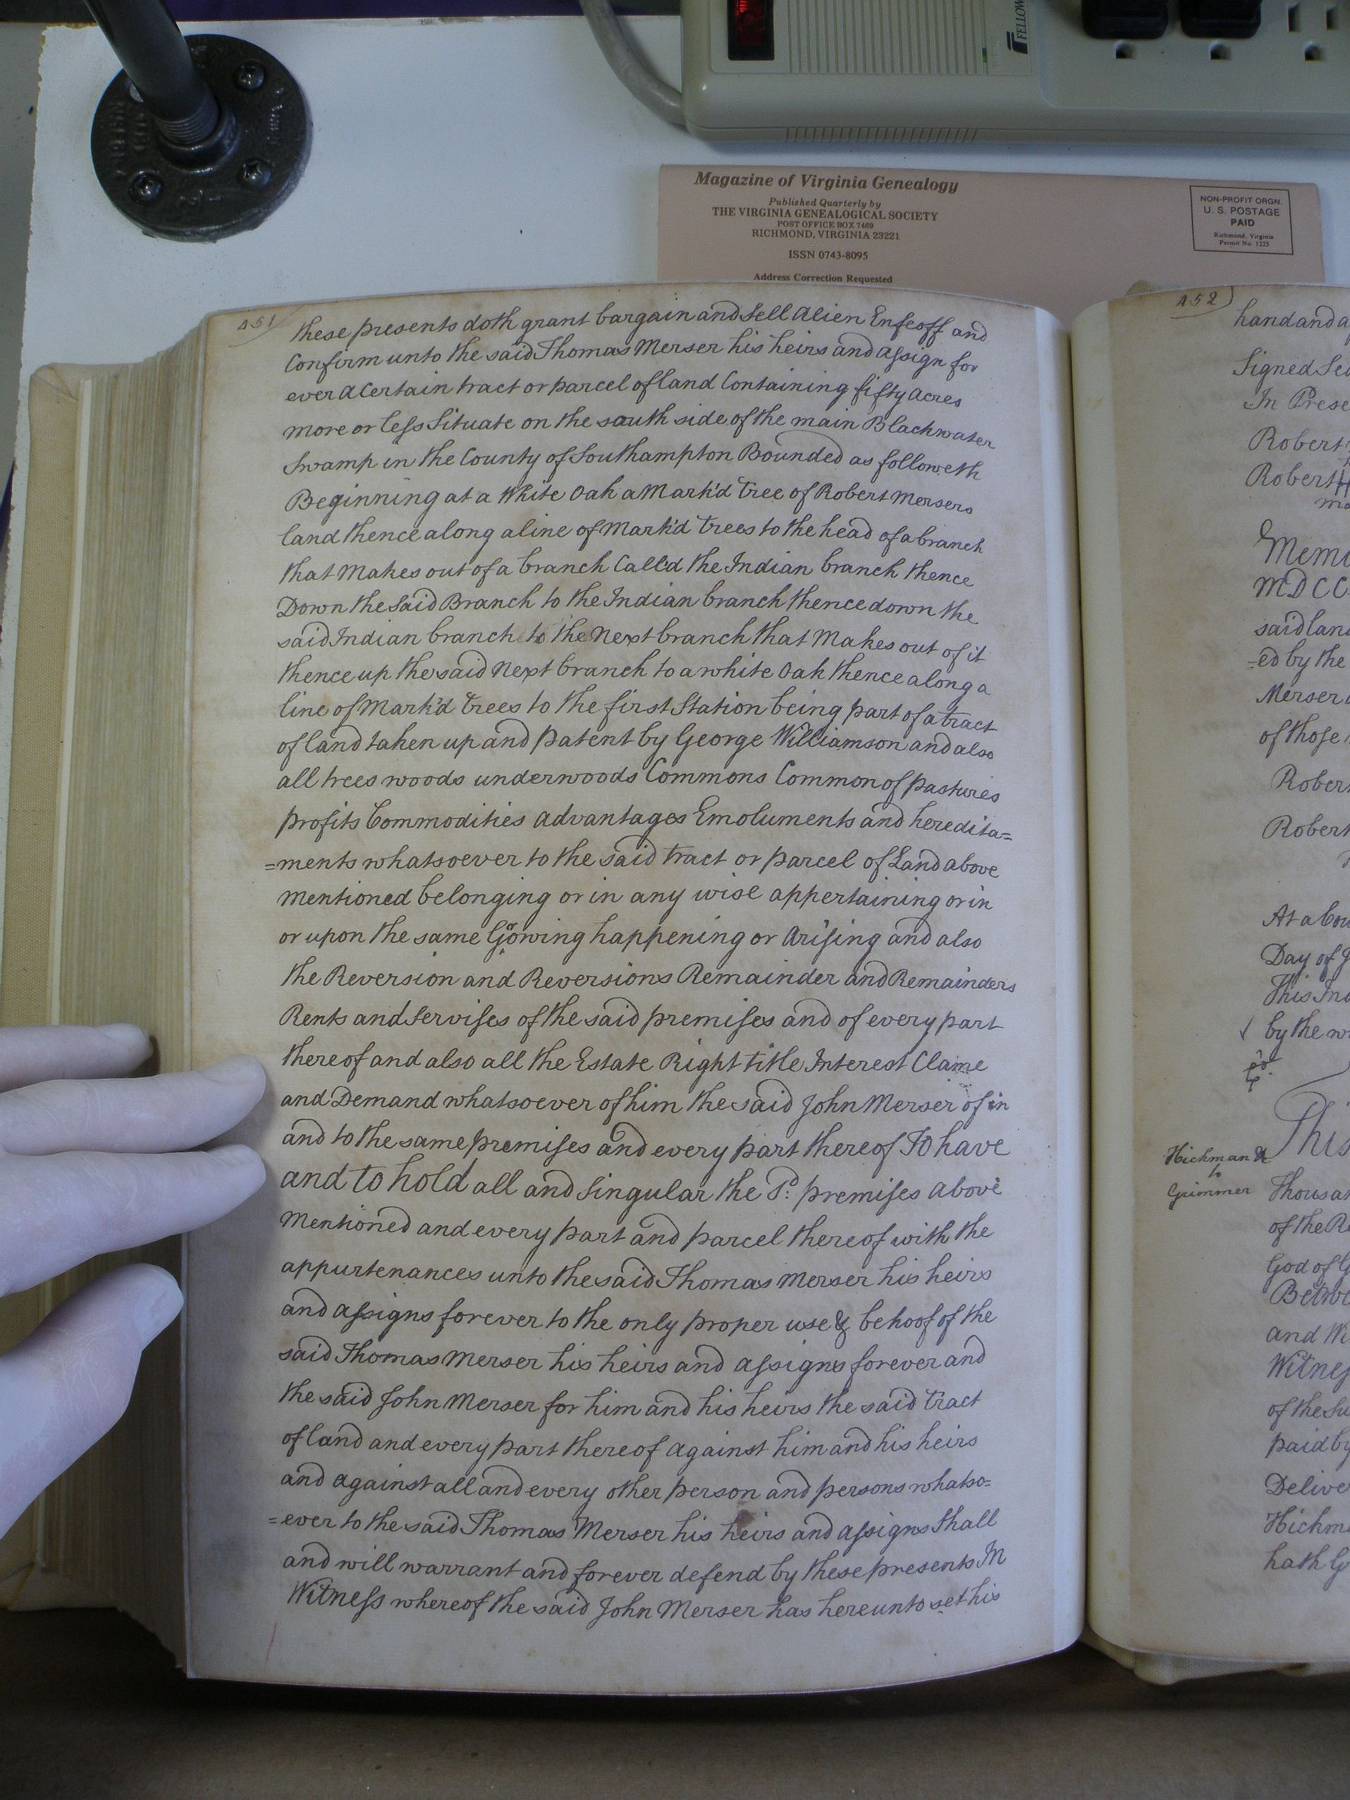 FELLOW
Magazine of Virginia Genealogy
Published Quarterly by
THE VIRGINIA GENEALOGICAL SOCIETY
POST OFFICE BOX 7469
RICHMOND, VIRGINIA 23221
ISSN 0743-8095
Address Correction Requested
NON-PROFIT ORGN.
U. S. POSTAGE
PAID
Richmond, Virginia
Permit No. 1225
451
these presents doth grant bargain and Sell Alien Enfeoff and
Confirm unto the said Thomas Merser his heirs and assign for
ever a Certain tract or parcel of land Containing fifty acres
more or less Situate on the south side of the main Blackwater
Swamp in the County of Southampton Bounded as followeth
Beginning at a White Oak a Mark'd Tree of Robert Mersers
land thence along a line of Mark'd trees to the head of a branch
that Makes out of a branch Call'd the Indian branch thence
Down the Said Branch to the Indian branch thence down the
said Indian branch to the Next branch that Makes out of it
thence up the said Next branch to a white Oak thence along a
line of Mark'd trees to the first Station being part of a tract
of land taken up and patent by George Williamson and also
all trees woods underwoods Commons Common of pastures
profits Commodities advantages Emoluments and heredita=
=ments whatsoever to the said tract or parcel of Land above
mentioned belonging or in any wise appertaining or in
or upon the same Growing happening or Arising and also
the Reversion and Reversions Remainder and Remainders
Rents and Servises of the said premises and of every part
thereof and also all the Estate Right title Interest Claime
and Demand whatsoever of him the said John Merser of in
and to the same premises and every part thereof To have
and to hold all and Singular the Sd. premises above
Mentioned and every part and parcel thereof with the
appurtenances unto the said Thomas Merser his heirs
and assigns forever to the only proper use & behoof of the
said Thomas Merser his heirs and assigns forever and
the said John Merser for him and his heirs the said tract
of land and every part thereof against him and his heirs
and against all and every other person and persons whatso=
=ever to the said Thomas Merser his heirs and assigns Shall
and will warrant and forever defend by these presents In
Witness whereof the said John Merser has hereunto set his
452
hand and a
Signed Sea
In Prese
Robert
Robert H
Memo
MDCC
said lan
=ed by the
Merser
of those
Rober
Robert
At a Cou
Day of
This Ind
by the w
This
Hickman
to
Grimmer
Thousan
of the Re
God of G
Betwe
and Wi
Witness
of the Su
paid by
Delive
Hickm
hath G